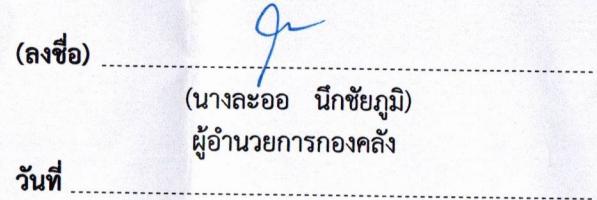 (ลงชื่อ)
(นางละออ นึกชัยภูมิ)
ผู้อำนวยการกองคลัง
วันที่